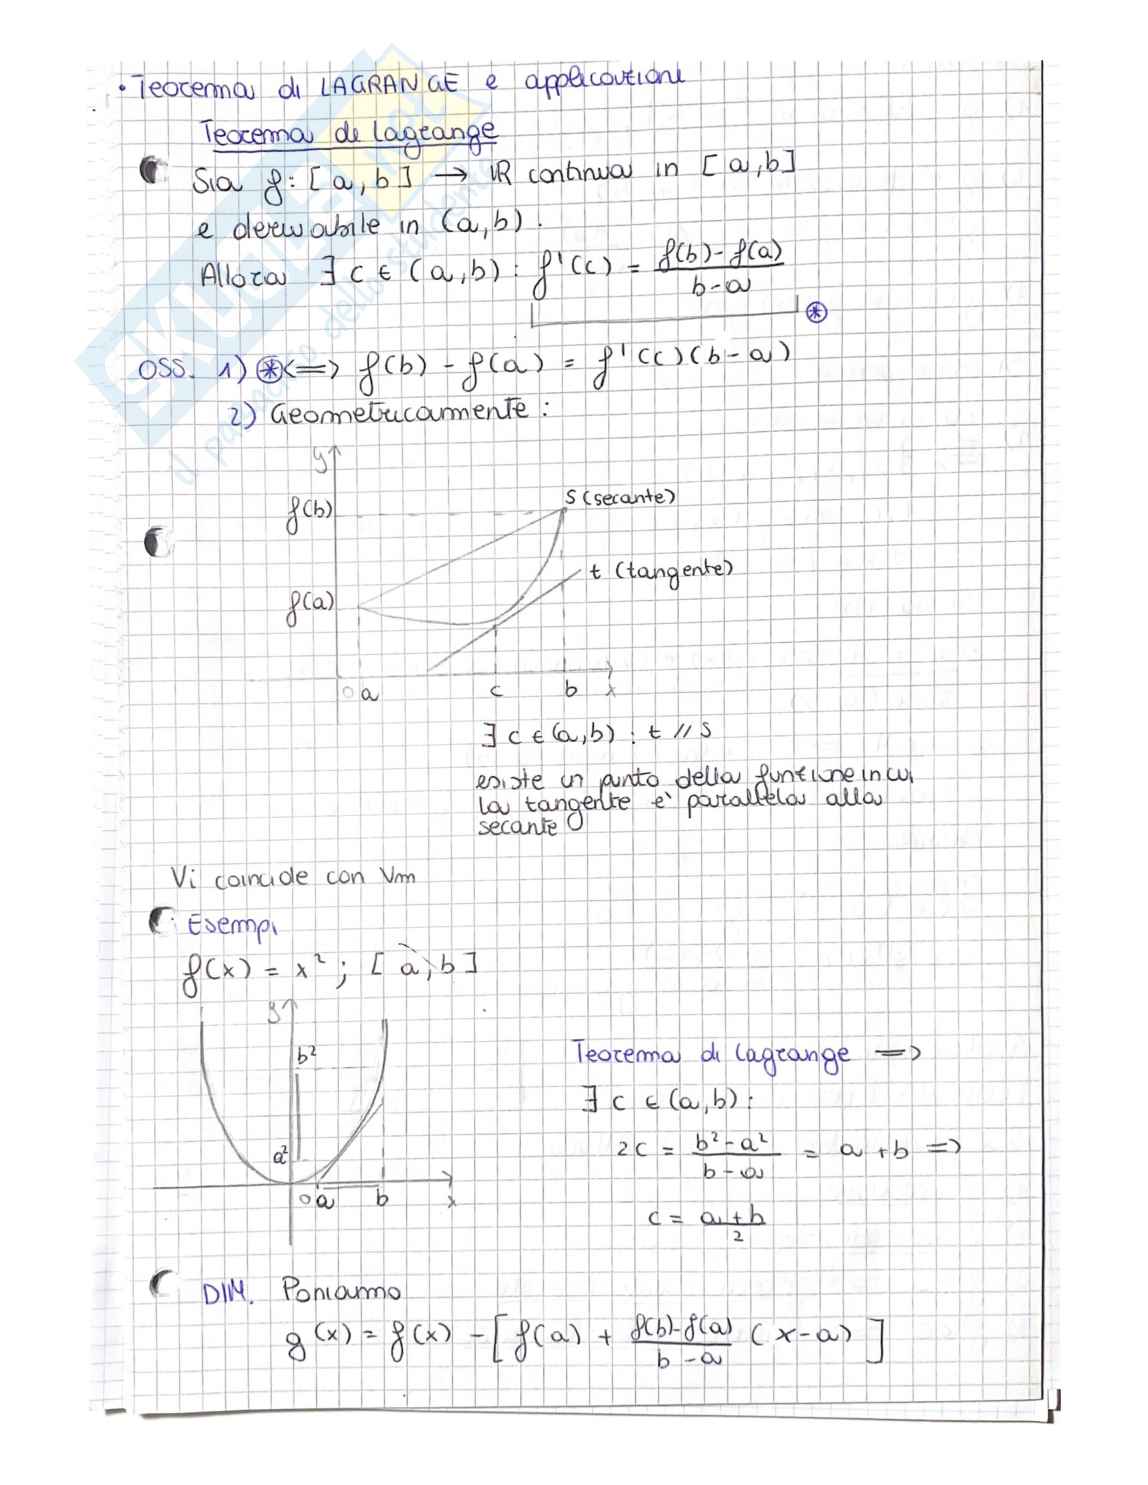 • Teorema di LAGRANGE e applicazioni
Teorema di Lagrange
Sia f: [a, b] → ℝ continua in [a, b]
e derivabile in (a, b).
Allora ∃ c ∈ (a, b) : f'(c) = (f(b) - f(a)) / (b - a)
⊛
OSS. 1) ⊛ <=> f(b) - f(a) = f'(c)(b - a)
2) Geometricamente :
y
f(b)
s (secante)
t (tangente)
f(a)
0 a c b x
∃ c ∈ (a, b) : t // s
esiste un punto della funzione in cui
la tangente e' parallela alla
secante
Vi coincide con Vm
Esempi
f(x) = x² ; [a, b]
y
b²
Teorema di Lagrange =>
∃ c ∈ (a, b) :
2c = (b² - a²) / (b - a) = a + b =>
a²
0 a b x
c = (a + b) / 2
DIM. Poniamo
g(x) = f(x) - [f(a) + (f(b) - f(a)) / (b - a) (x - a)]